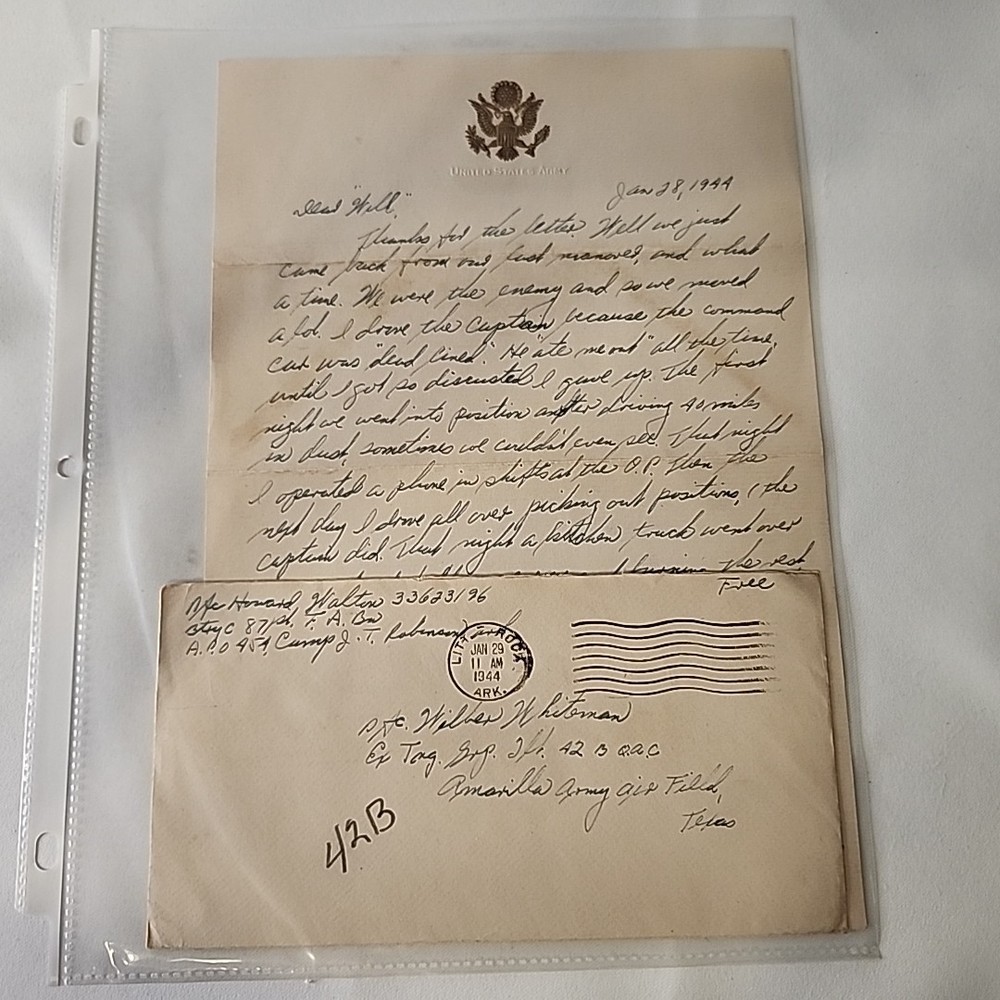 UNITED STATES ARMY
Jan 28, 1944
Dear "Will,"
Thanks for the letter. Well we just
came back from our last manoves, and what
a time. We were the enemy and so we moved
a lot. I drove the Captain because the command
car was "dead lined." He "ate me out" all the time,
until I got so discusted I gave up. The first
night we went into position after driving 40 miles
in dust, sometimes we couldn't even see. That night
I operated a phone in shifts at the O.P. Then the
next day I drove all over picking out positions, (the
captain did. That night a kitchen truck went over
burning the rest
Free
Pfc Howard Walton 33623196
Btry C 87th, F. A. Bn
A.P.O 454, Camp J. T. Robinson, Ark
LITTLE ROCK
JAN 29
11 AM
1944
ARK.
Pfc. Wilber Whiteman
Ex Tng. Grp. Flt. 42 B
Amarillo Army Air Field,
Texas
42B